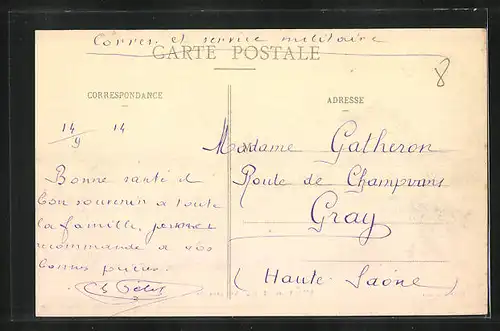 Corres. et service militaire
CARTE POSTALE
8
CORRESPONDANCE
ADRESSE
14/9 14
Bonne santé et
bon souvenir à toute
la famille,
recommande à vos
bonnes prières.
Madame Gatheron
Route de Champvans
Gray
(Haute-Saône)